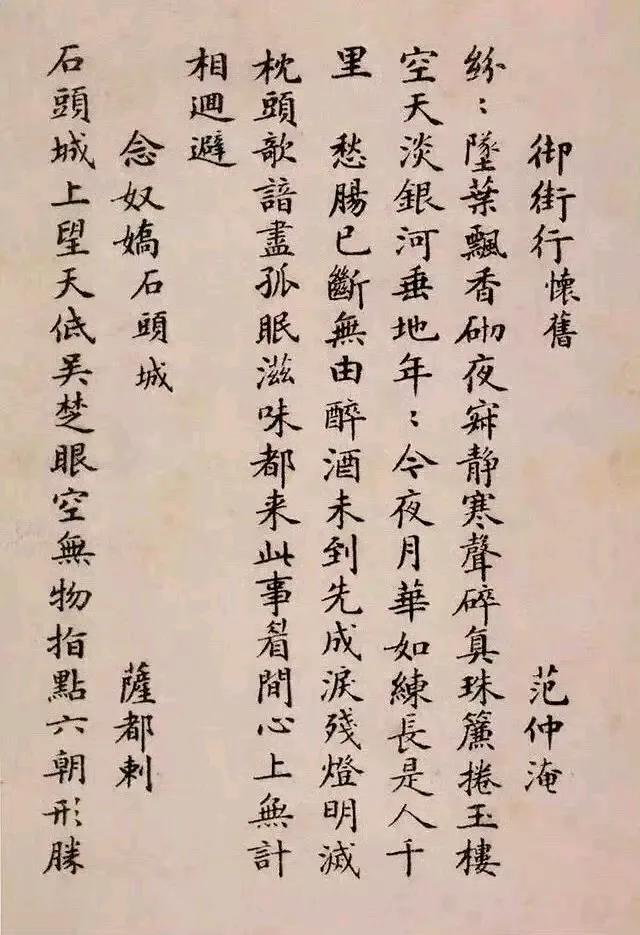 御街行 懷舊 范仲淹
紛〻墜葉飄香砌夜寂静寒聲碎真珠簾捲玉樓
空天淡銀河垂地年〻今夜月華如練長是人千
里 愁腸已斷無由醉酒未到先成淚殘燈明滅
枕頭欹諳盡孤眠滋味都来此事眉間心上無計
相迴避
念奴嬌 石頭城 薩都剌
石頭城上望天低吳楚眼空無物指點六朝形勝